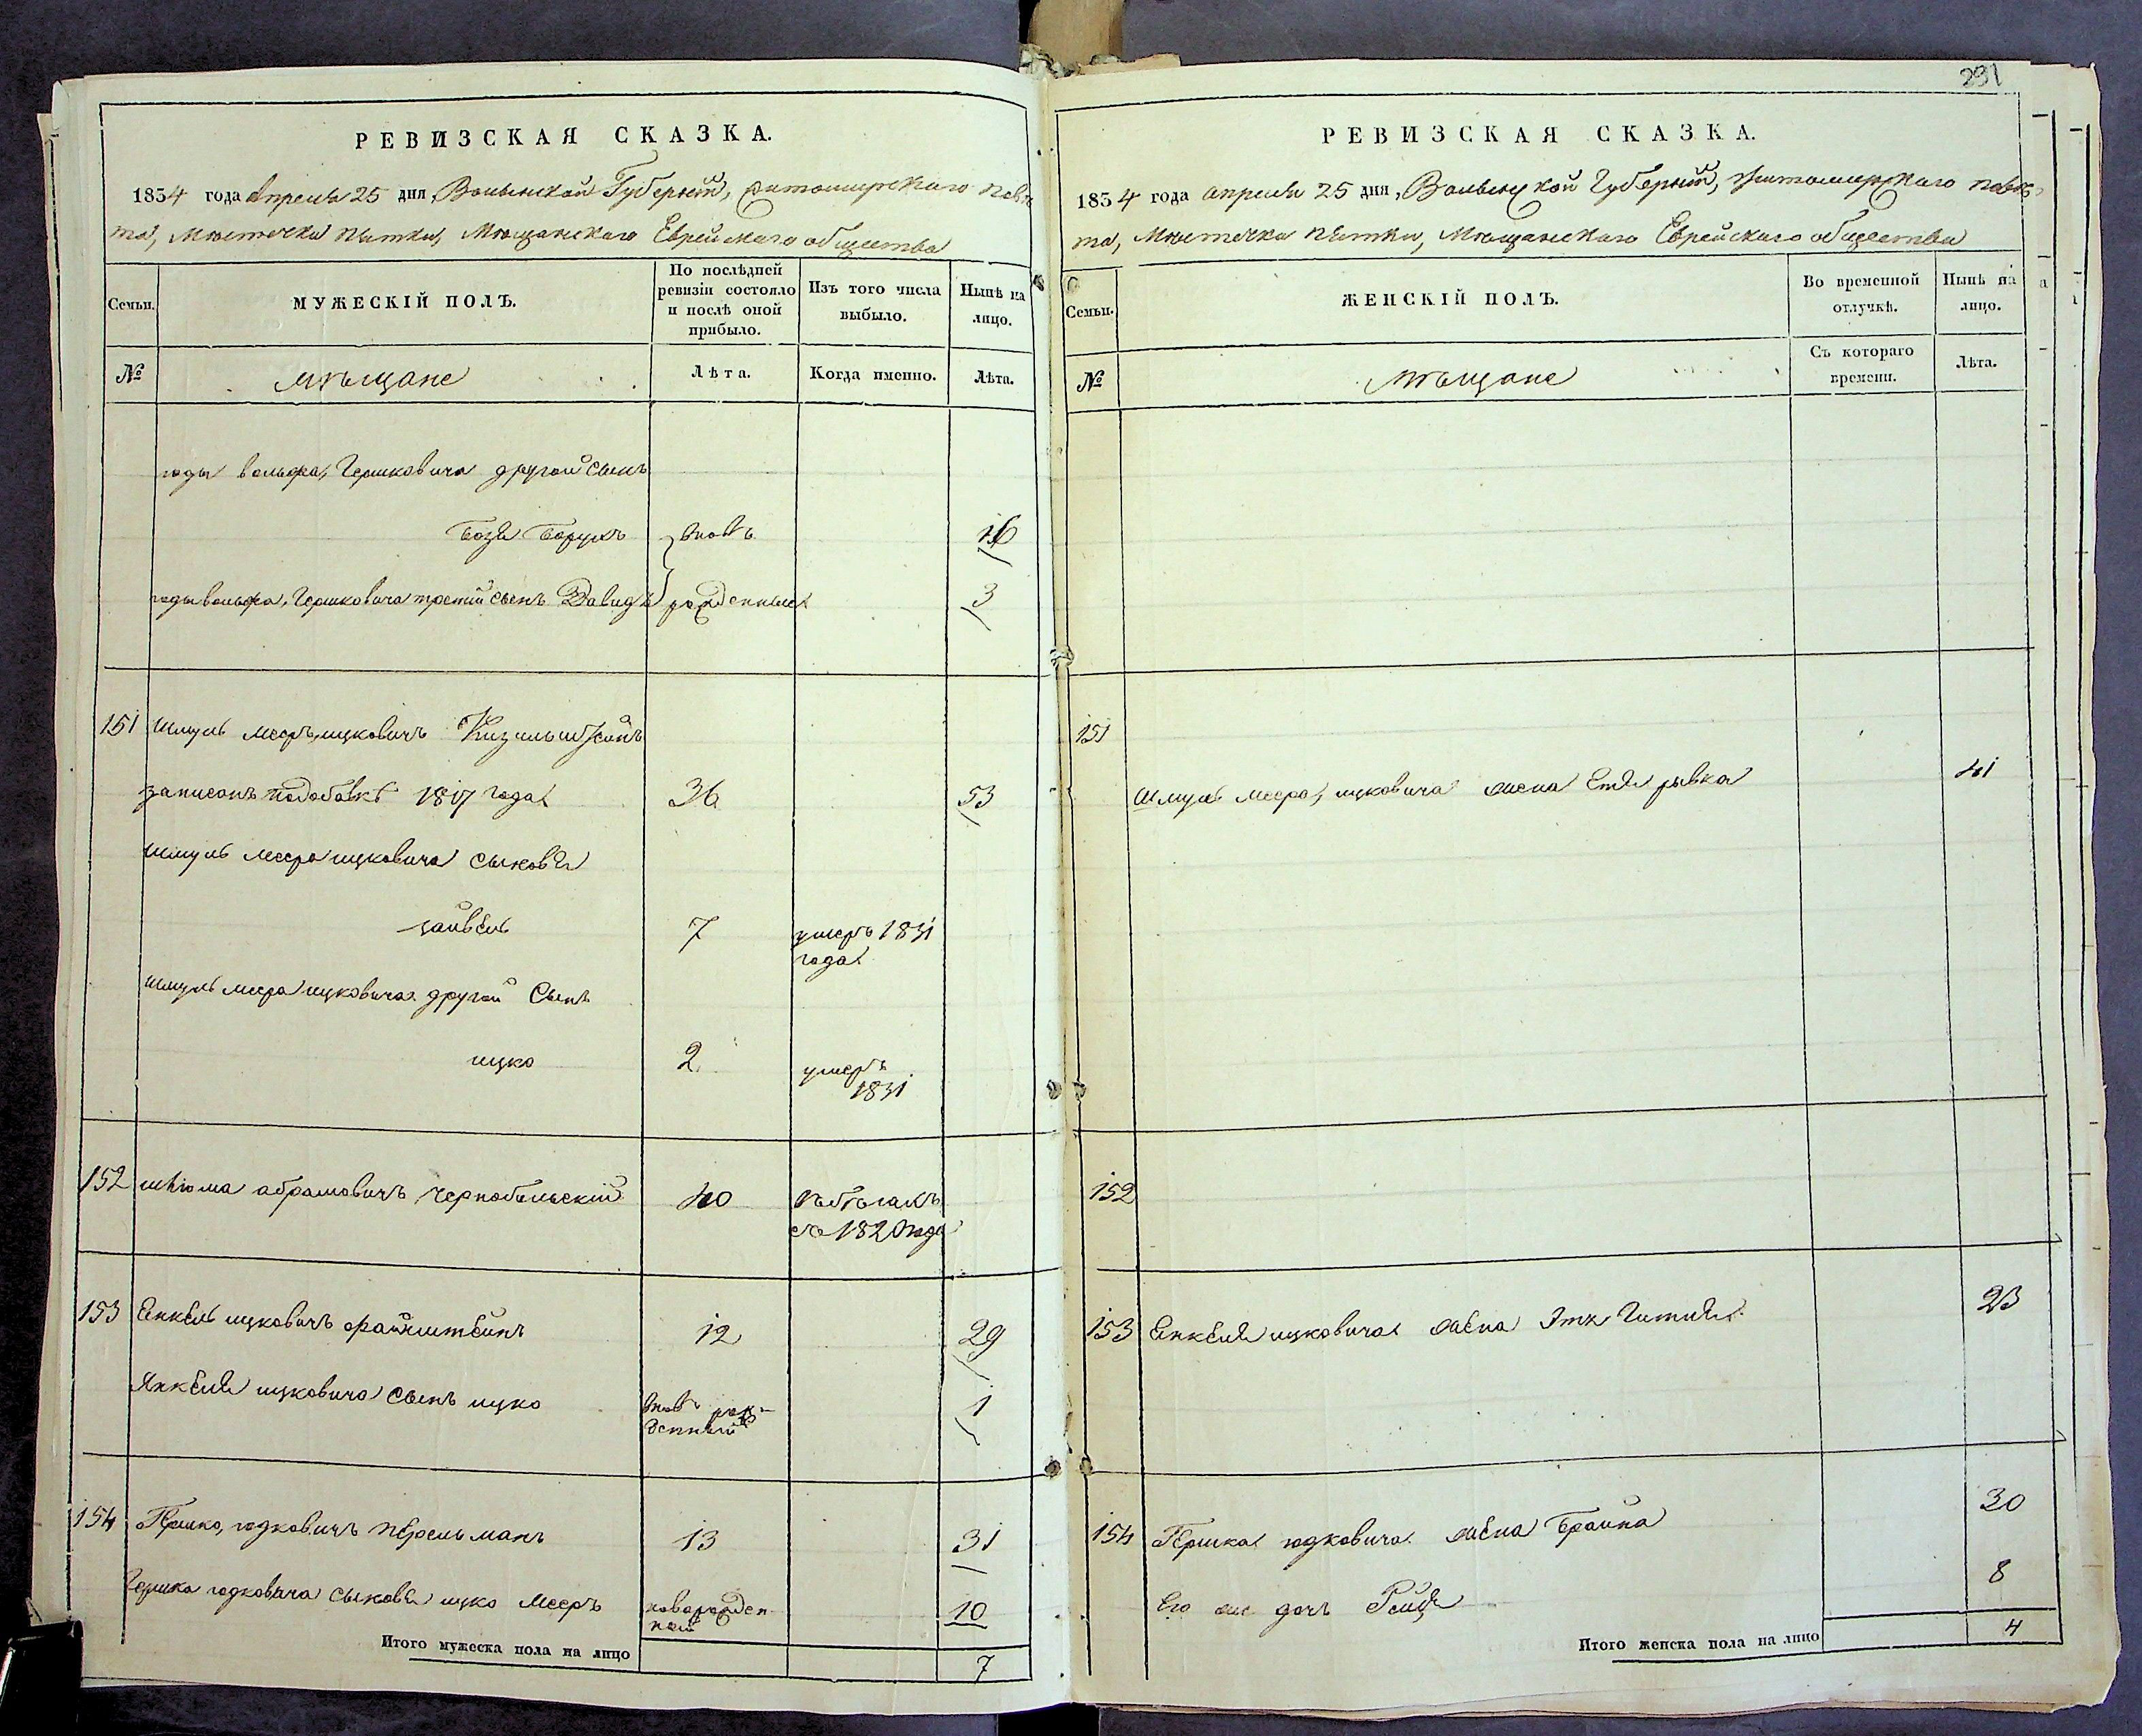 РЕВИЗСКАЯ СКАЗКА.
1834 года Апреля 25 дня, Волынской Губерніи, житомирскаго повѣ
та, Мѣстечка пятки, Мѣщанскаго Еврейскаго общества
Семьи.
МУЖЕСКІЙ ПОЛЪ.
По послѣдней ревизіи состояло и послѣ оной прибыло.
Изъ того числа выбыло.
Нынѣ на лицо.
№
мѣщане
Лѣта.
Когда именно.
Лѣта.
вольфа, Гершковича другой сынъ
Борухъ вновь 16
вольфа, Гершковича третій сынъ Давидъ рожденные 3
151 Шмуль мееръ ицковичъ
записанъ 1817 года 36 53
Шмуль меера ицковича сыновья
зайвель 7 умеръ 1831
года
Шмуль меера ицковича другой Сынъ
ицко 2 умеръ
1831
152 шлiома абрамовичъ чернобыльскій 40 въ бѣгахъ
съ 1820 года
153 Енкель ицковичъ файнштейнъ 12 29
Янкеля ицковича сынъ ицко вновь рож-
денный 1
154 Гершко, юдковичъ перельманъ 13 31
Гершка юдковича сыновья ицко Мееръ новорожден
ный 10
Итого мужеска пола на лицо 7
231
РЕВИЗСКАЯ СКАЗКА.
1834 года апреля 25 дня, Волынской Губерніи, житомирскаго повѣ
та, Мѣстечка пятки, Мѣщанскаго Еврейскаго общества
Семьи.
ЖЕНСКІЙ ПОЛЪ.
Во временной отлучкѣ.
Нынѣ на лицо.
№
мѣщане
Съ котораго времени.
Лѣта.
151
Шмуль меера, ицковича жена Стя рывка 41
152
153 Енкеля ицковича жена Этя Гитля 23
154 Гершка юдковича жена Брайна 30
Его же дочь Рейзя 8
Итого женска пола на лицо 4